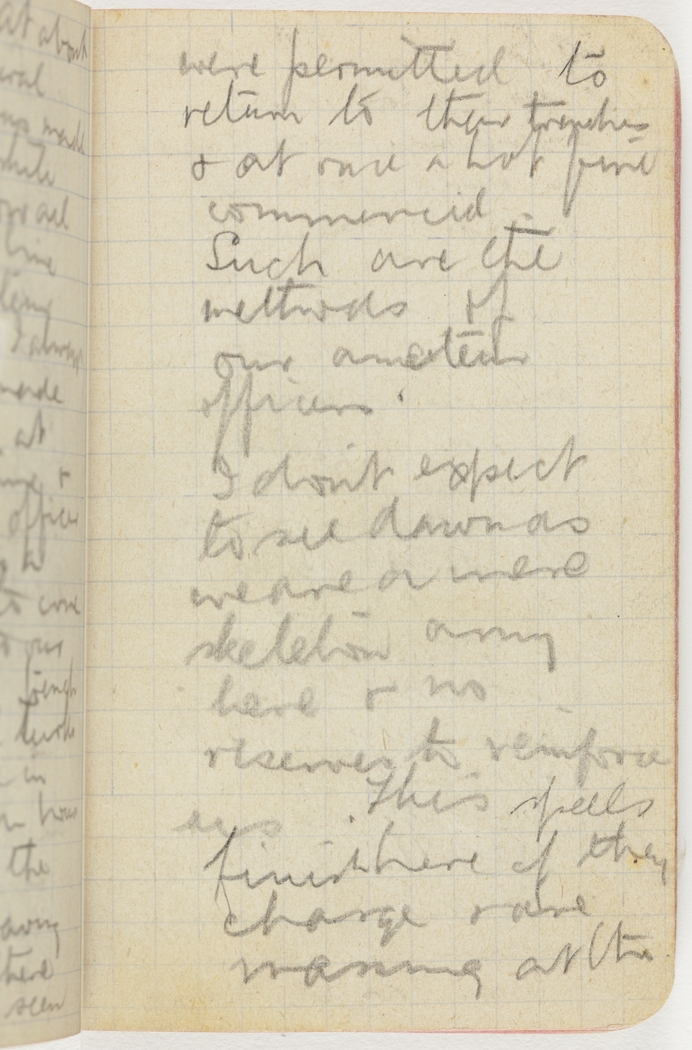 at about
made
line
I always
made
at
office
to come
to our
in
the
there
seen
were permitted to
return to their trenches
& at once a hot fire
commencid.
Such are the
methods of
our amateur
officers.
I don't expect
to see dawn as
we are a mere
skeleton army
here & no
reserves to reinforce
us. This spells
finish here if they
charge & are
massing at the